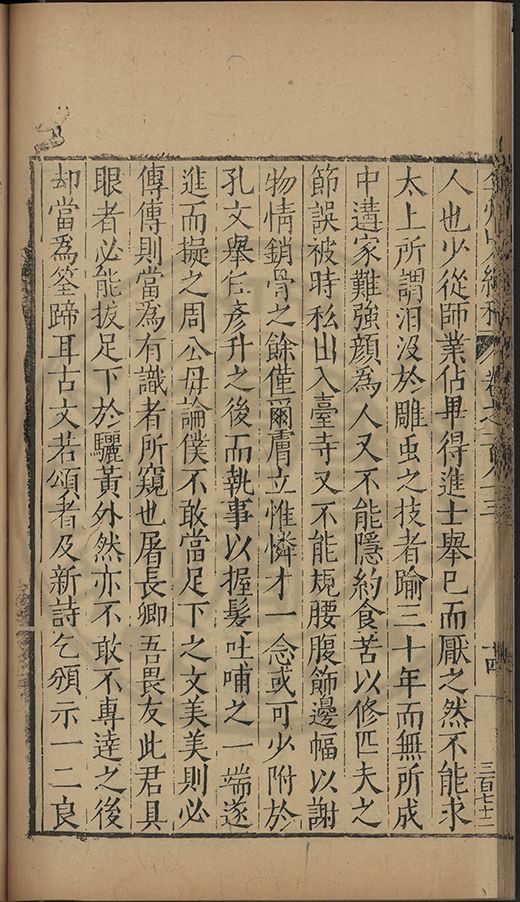 卷之一百八十三 十四 三百七十二
人也少從師業佔畢得進士舉已而厭之然不能求
太上所謂汨没於雕虫之技者踰三十年而無所成
中遘家難強顔為人又不能隱約食苦以修匹夫之
節誤被時私出入臺寺又不能規腰腹飾邊幅以謝
物情銷骨之餘僅爾膚立惟憐才一念或可少附於
孔文舉任彥升之後而執事以握髮吐哺之一端遂
進而擬之周公毋論僕不敢當足下之文美美則必
傳傳則當為有識者所窺也屠長卿吾畏友此君具
眼者必能拔足下於驪黃外然亦不敢不專達之後
却當為筌蹄耳古文若頌者及新詩乞頒示一二良